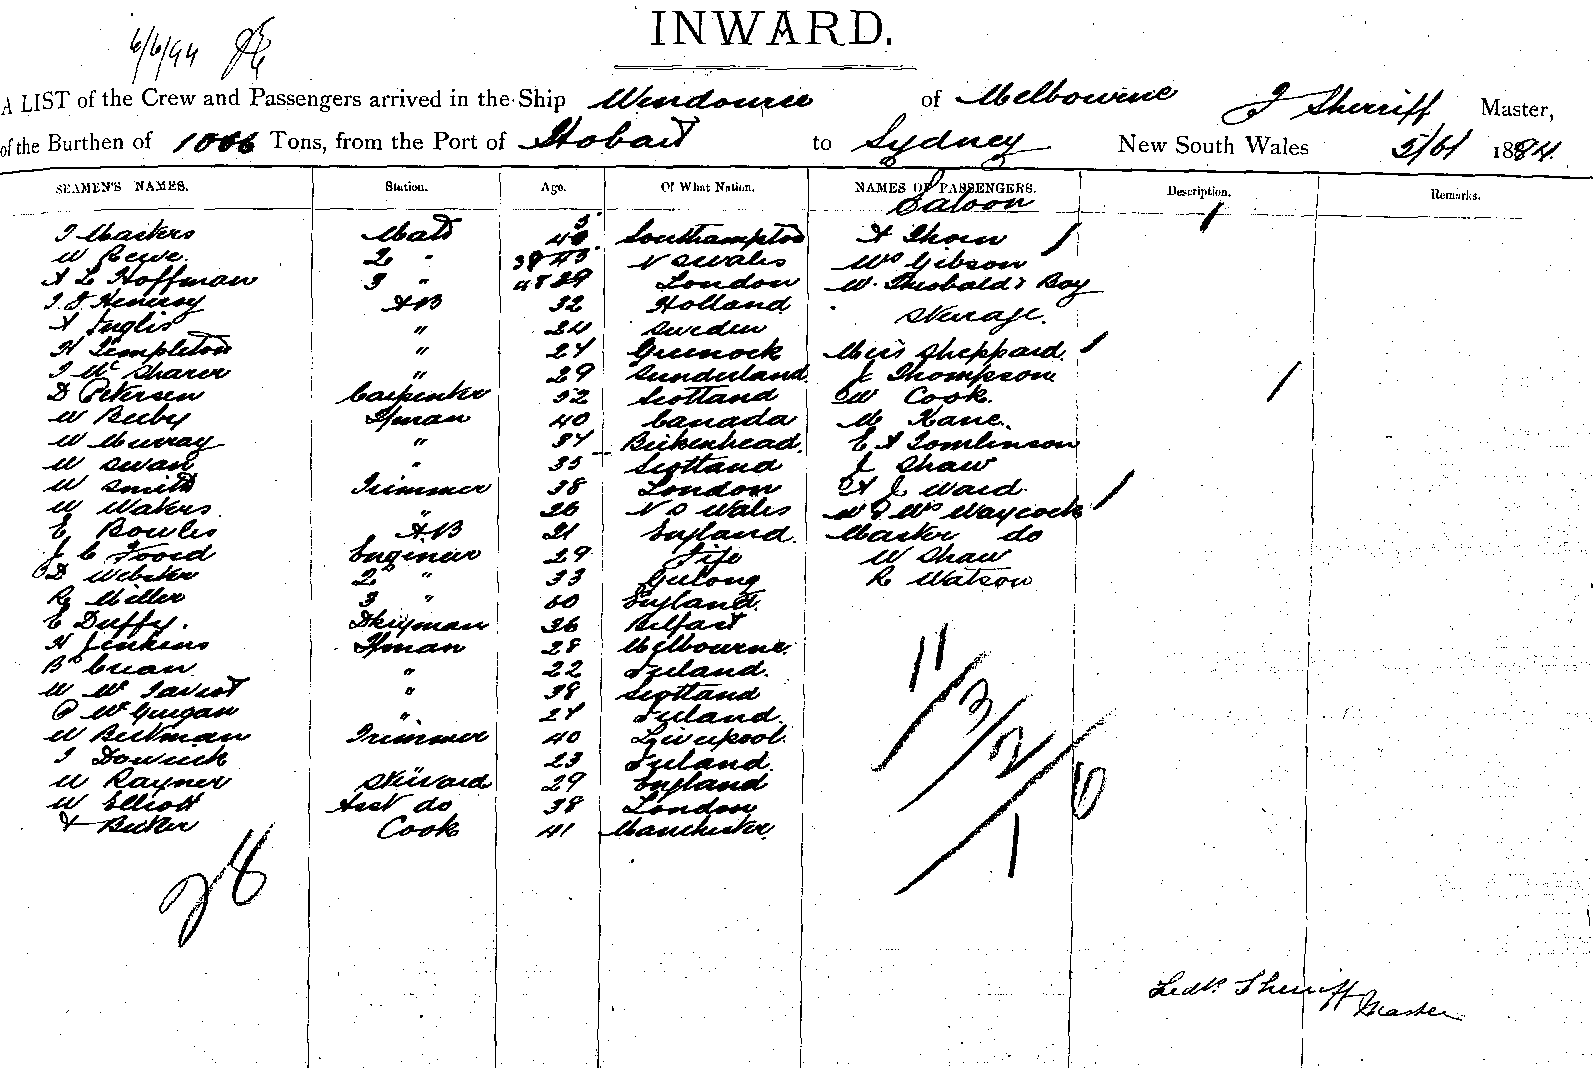 INWARD.
6/6/94
A LIST of the Crew and Passengers arrived in the Ship Wendouree of Melbourne F Sherriff Master,
of the Burthen of 1066 Tons, from the Port of Hobart to Sydney New South Wales 5/6/ 1894.
SEAMEN'S NAMES. Station. Age. Of What Nation. NAMES OF PASSENGERS. Description. Remarks.
Saloon
Mate Southampton A Thorn
2 " N S Wales Mrs Gibson
A L Hoffman 3 " London W. Theobald & Boy
AB 32 Holland
Steerage.
A Inglis " 24 Sweden
H Templeton " 24 Greenock Miss Sheppard.
" 29 Sunderland J Thompson
D Petersen Carpenter 52 Scotland W Cook.
W Beeby Fman 40 Canada M Kane.
W Murray " 34 Birkenhead. E A Tomlinson
W Swan " 35 Scotland J Shaw
W Smith Trimmer 38 London A J Ward
W Waters. " 26 N S Wales W & Mrs Waycock
E Bowles AB 21 England. Master do
J C Foord Engineer 29 Fife W Shaw
D Webster 2 " 33 Geelong R Watson
R Miller 3 " 60 England.
E Duffy. Dkeyman 36 Belfast
H Jenkins Fman 28 Melbourne.
" 22 Ireland.
" 38 Scotland
P McGuigan " 24 Ireland.
W Beekman Trimmer 40 Liverpool.
23 Ireland
W Rayner Steward 29 England
W Elliott Asst do 38 London
Becker Cook 41 Manchester
28
11/3/2/6
1
Sherriff
Master